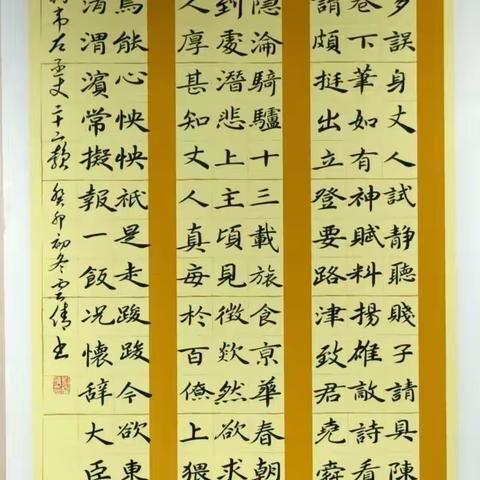 多誤身丈人試靜聽賤子請具陳
卷下筆如有神賦料揚雄敵詩看
謂頗挺出立登要路津致君堯舜
隱淪騎驢十三載旅食京華春朝
到處潛悲上主頃見徵欻然欲求
人厚甚知丈人真每於百僚上猥
焉能心怏怏祇是走踆踆今欲東
清渭濱常擬報一飯況懷辭大臣
韋左丞丈二十二韻 癸卯初冬雲倩书